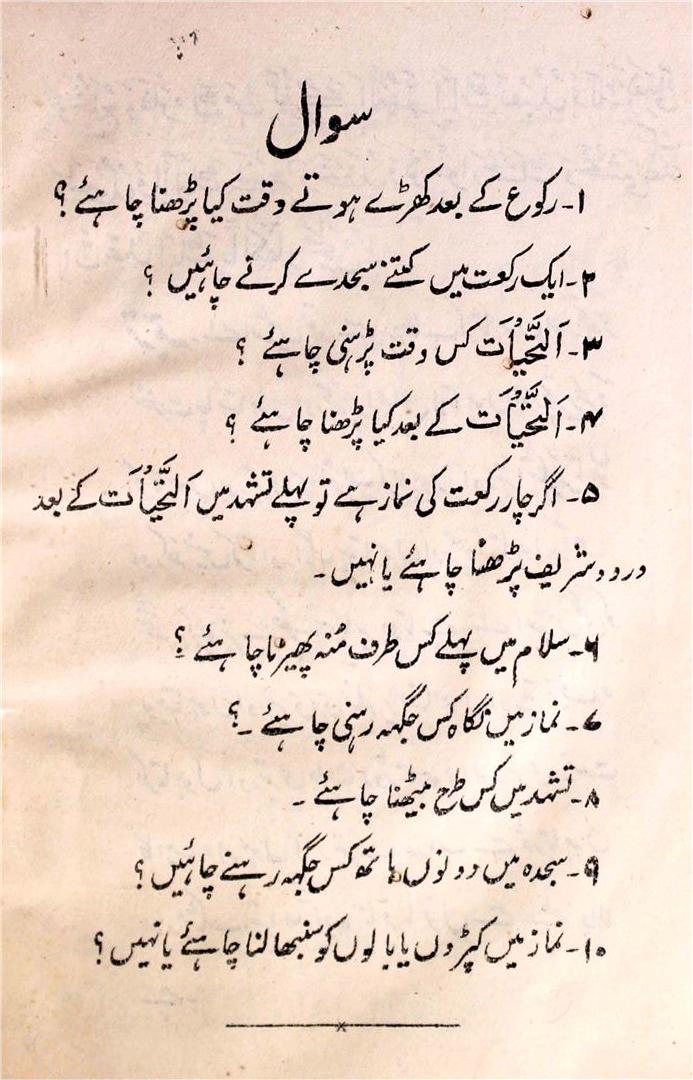 سوال
۱۔ رکوع کے بعد کھڑے ہوتے وقت کیا پڑھنا چاہئے؟
۲۔ ایک رکعت میں کتنے سجدے کرنے چاہئیں ؟
۳۔ اَلتَّحِیَّاُت کس وقت پڑہنی چاہئے ؟
۴۔ اَلتَّحِیَّاُت کے بعد کیا پڑھنا چاہئے ؟
۵۔ اگر چار رکعت کی نماز ہے تو پہلے تشہد میں اَلتَّحِیَّاُت کے بعد
درود شریف پڑھنا چاہئے یا نہیں۔
۶۔ سلام میں پہلے کس طرف مُنہ پھیرنا چاہئے ؟
۷۔ نماز میں نگاہ کس جگہہ رہنی چاہئے ۔؟
۸۔ تشہد میں کس طرح بیٹھنا چاہئے ۔
۹۔ سجدہ میں دونوں ہاتھ کس جگہہ رہنے چاہئیں ؟
۱۰۔ نماز میں کپڑوں یا بالوں کو سنبھالنا چاہئے یا نہیں؟